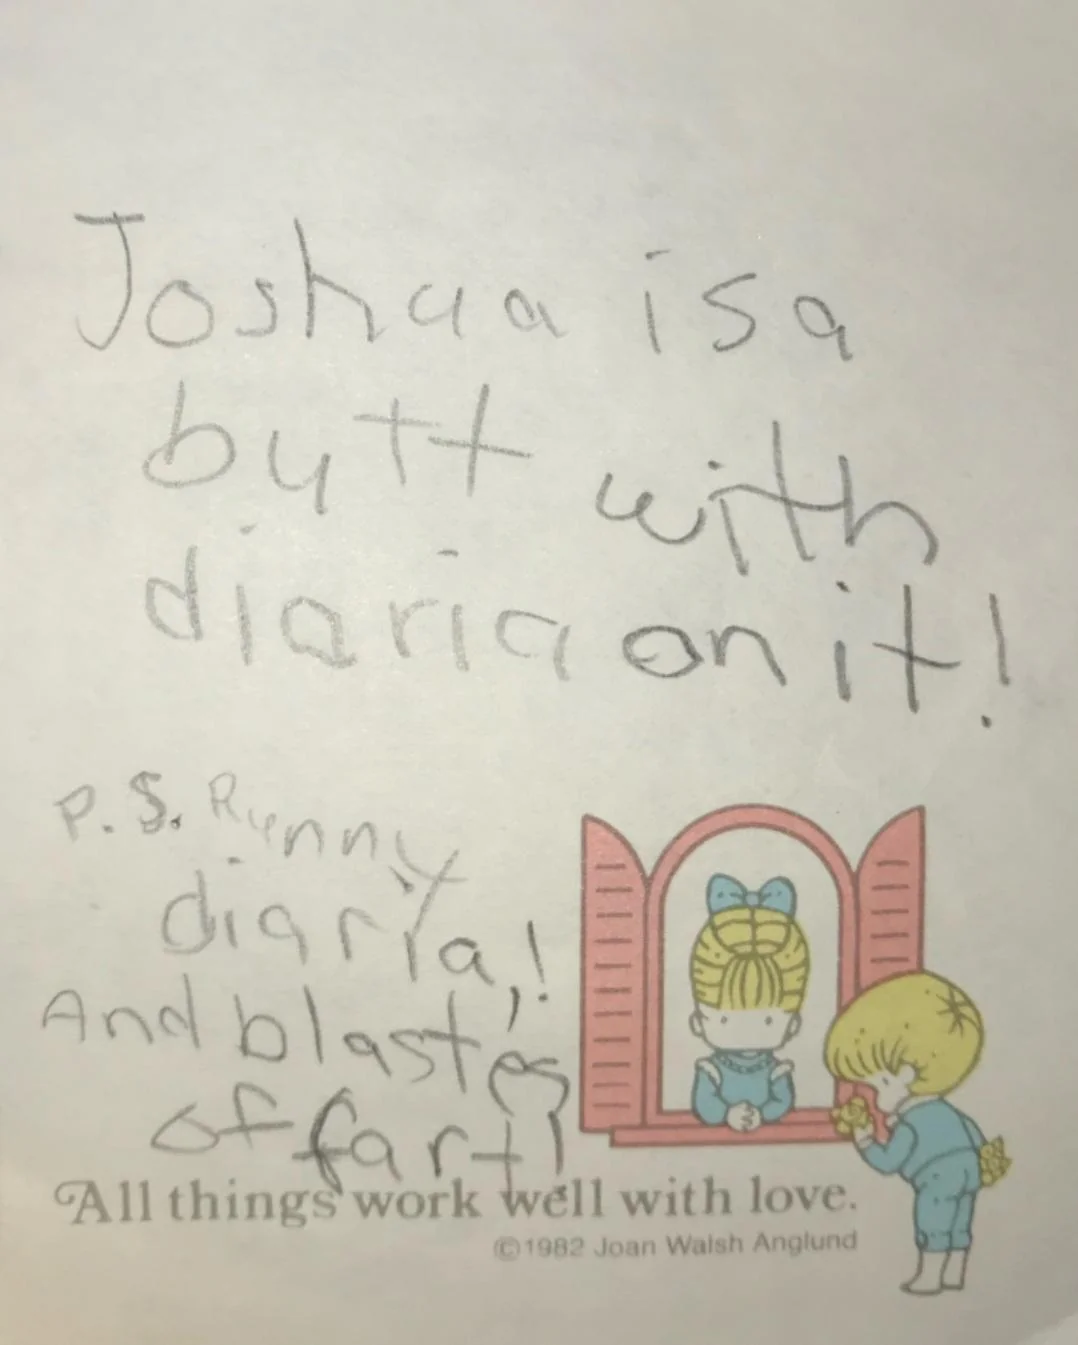 Joshua is a
butt with
diaria on it!
P.S. Runny
diarria!
And blastes
of fart!
All things work well with love.
©1982 Joan Walsh Anglund